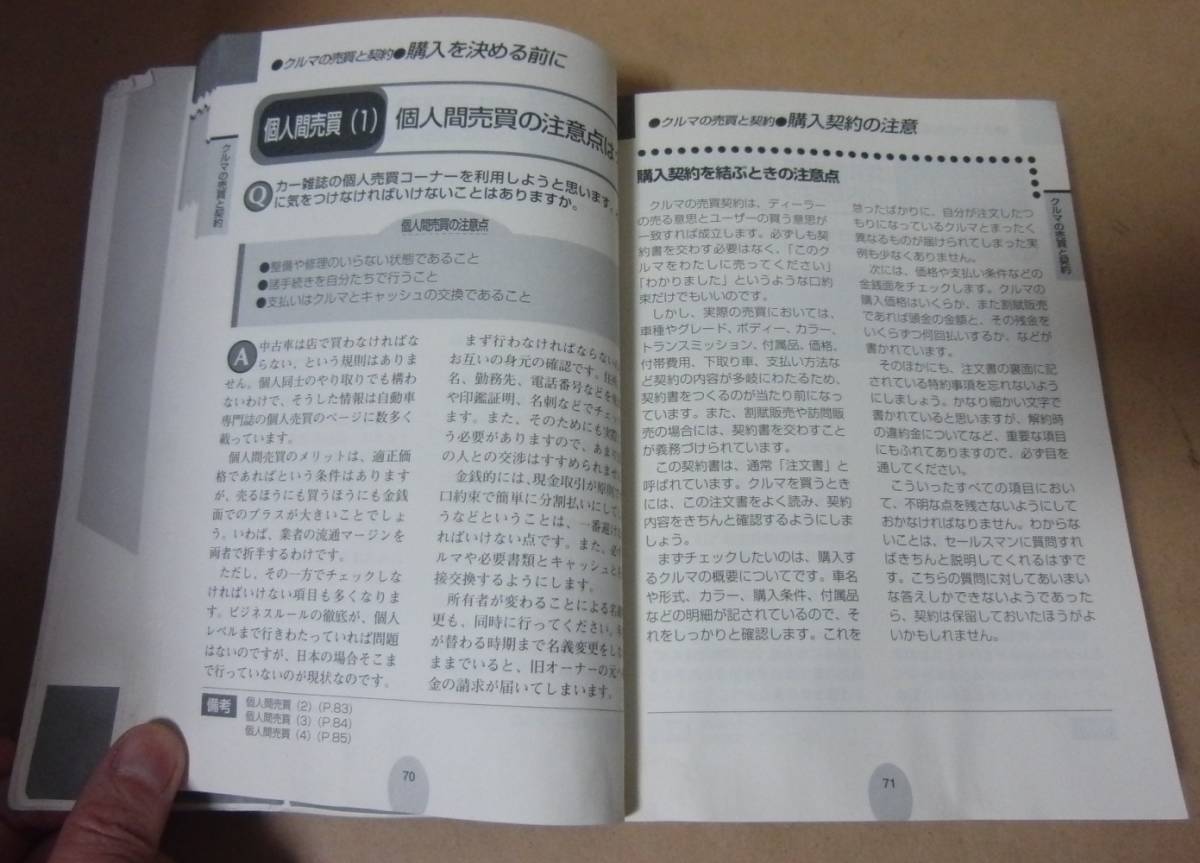 ●クルマの売買と契約●購入を決める前に
個人間売買(1) 個人間売買の注意点は
クルマの売買と契約
Q カー雑誌の個人売買コーナーを利用しようと思います。
に気をつけなければいけないことはありますか。
個人間売買の注意点
●整備や修理のいらない状態であること
●諸手続きを自分たちで行うこと
●支払いはクルマとキャッシュの交換であること
A 中古車は店で買わなければな
らない、という規則はありま
せん。個人同士のやり取りでも構わ
ないわけで、そうした情報は自動車
専門誌の個人売買のページに数多く
載っています。
個人間売買のメリットは、適正価
格であればという条件はあります
が、売るほうにも買うほうにも金銭
面でのプラスが大きいことでしょ
う。いわば、業者の流通マージンを
両者で折半するわけです。
ただし、その一方でチェックしな
ければいけない項目も多くなりま
す。ビジネスルールの徹底が、個人
レベルまで行きわたっていれば問題
はないのですが、日本の場合そこま
で行っていないのが現状なのです。
まず行わなければならない
お互いの身元の確認です。住
名、勤務先、電話番号などを
や印鑑証明、名刺などでチェ
ます。また、そのためにも実際
う必要がありますので、あま
の人との交渉はすすめられませ
金銭的には、現金取引が原則
口約束で簡単に分割払いにして
うなどということは、一番避け
ればいけない点です。また、必
ルマや必要書類とキャッシュと
接交換するようにします。
所有者が変わることによる名
更も、同時に行ってください。
が替わる時期まで名義変更をし
ままでいると、旧オーナーの元
金の請求が届いてしまいます。
備考 個人間売買(2)(P.83)
個人間売買(3)(P.84)
個人間売買(4)(P.85)
70
●クルマの売買と契約●購入契約の注意
購入契約を結ぶときの注意点
クルマの売買と契約
クルマの売買契約は、ディーラー
の売る意思とユーザーの買う意思が
一致すれば成立します。必ずしも契
約書を交わす必要はなく、「このク
ルマをわたしに売ってください」
「わかりました」というような口約
束だけでもいいのです。
しかし、実際の売買においては、
車種やグレード、ボディー、カラー、
トランスミッション、付属品、価格、
付帯費用、下取り車、支払い方法な
ど契約の内容が多岐にわたるため、
契約書をつくるのが当たり前になっ
ています。また、割賦販売や訪問販
売の場合には、契約書を交わすこと
が義務づけられています。
この契約書は、通常「注文書」と
呼ばれています。クルマを買うときに
には、この注文書をよく読み、契約
内容をきちんと確認するようにしま
しょう。
まずチェックしたいのは、購入す
るクルマの概要についてです。車名
や形式、カラー、購入条件、付属品
などの明細が記されているので、そ
れをしっかりと確認します。これを
怠ったばかりに、自分が注文したつ
もりになっているクルマとまったく
異なるものが届けられてしまった実
例も少なくありません。
次には、価格や支払い条件などの
金銭面をチェックします。クルマの
購入価格はいくらか、また割賦販売
であれば頭金の金額と、その残金を
いくらずつ何回払いするか、などが
書かれています。
そのほかにも、注文書の裏面に記
されている特約事項を忘れないよう
にしましょう。かなり細かい文字で
書かれていると思いますが、解約時
の違約金についてなど、重要な項目
にもふれてありますので、必ず目を
通してください。
こういったすべての項目におい
て、不明な点を残さないようにして
おかなければなりません。わからな
いことは、セールスマンに質問すれ
ばきちんと説明してくれるはずで
す。こちらの質問に対してあいまい
な答えしかできないようであった
ら、契約は保留しておいたほうがよ
いかもしれません。
71